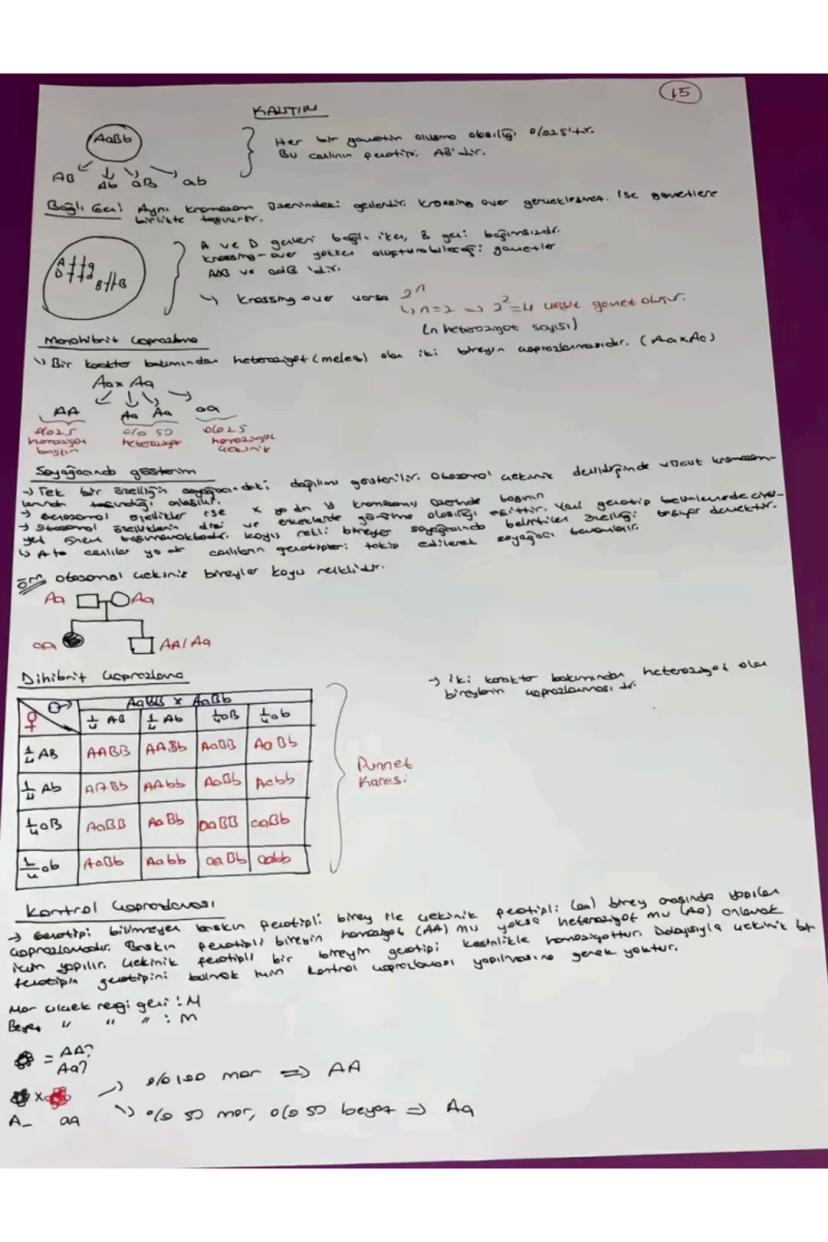 15
KALITIM
AaBb
AB Ab aB ab
Her bir gametin oluşma olasılığı %25'tir.
Bu canlının fenotipi AB'dir.
Bağlı Gen: Aynı kromozom üzerindeki genlerdir. Krossing over gerçekleşmez ise gametlere
birlikte taşınırlar.
A ve D genleri bağlı iken, B geni bağımsızdır.
Krossing-over yokken oluşturabileceği gametler
ADB ve adB'dir.
↳ Krossing over varsa 2ⁿ
↳ n=2 ⇒ 2²=4 çeşit gamet oluşur.
(n heterozigot sayısı)
Monohibrit Çaprazlama
↳ Bir karakter bakımından heterozigot (melez) olan iki bireyin çaprazlanmasıdır. (AaxAa)
Aa x Aa
AA Aa Aa aa
%25 %50 %25
homozigot heterozigot homozigot
baskın çekinik
Soyağacında gösterim
→ Tek bir özelliğin soyağacındaki dağılımı gösterilir. Otozomal çekinik denildiğinde vücut kromozom-
larında taşındığı anlaşılır.
→ Gonozomal özellikler ise X ya da Y kromozomu üzerinde taşınır.
→ Otozomal özelliklerin dişi ve erkeklerde görülme olasılığı eşittir. Yani genotip
yet önem taşımamaktadır. Koyu renkli bireyler soyağacında belirtilen özelliği taşıyor demektir.
↳ Ata canlılar ya da canlıların genotipleri takip edilerek soyağacı
örn otozomal çekinik bireyler koyu renklidir.
Aa Aa
aa AA/Aa
Dihibrit Çaprazlama
→ İki karakter bakımından heterozigot olan
bireylerin çaprazlanmasıdır.
AaBb x AaBb
♀ ♂ 1/4 AB 1/4 Ab 1/4 aB 1/4 ab
1/4 AB AABB AABb AaBB AaBb
1/4 Ab AABb AAbb AaBb Aabb
1/4 aB AaBB AaBb aaBB aaBb
1/4 ab AaBb Aabb aaBb aabb
Punnet
Karesi
Kontrol Çaprazlaması
→ Genotipi bilinmeyen baskın fenotipli birey ile çekinik fenotipli (aa) birey arasında yapılan
çaprazlamadır. Baskın fenotipli bireyin homozigot (AA) mu yoksa heterozigot mu (Aa) anlamak
için yapılır. Çekinik fenotipli bir bireyin genotipi kesinlikle homozigottur. Dolayısıyla çekinik bir
fenotipin genotipini bulmak için kontrol çaprazlaması yapılmasına gerek yoktur.
Mor çiçek rengi geni : M
Beyaz " " " : m
= AA?
Aa?
x → %100 mor ⇒ AA
A_ aa ↘ %50 mor, %50 beyaz ⇒ Aa